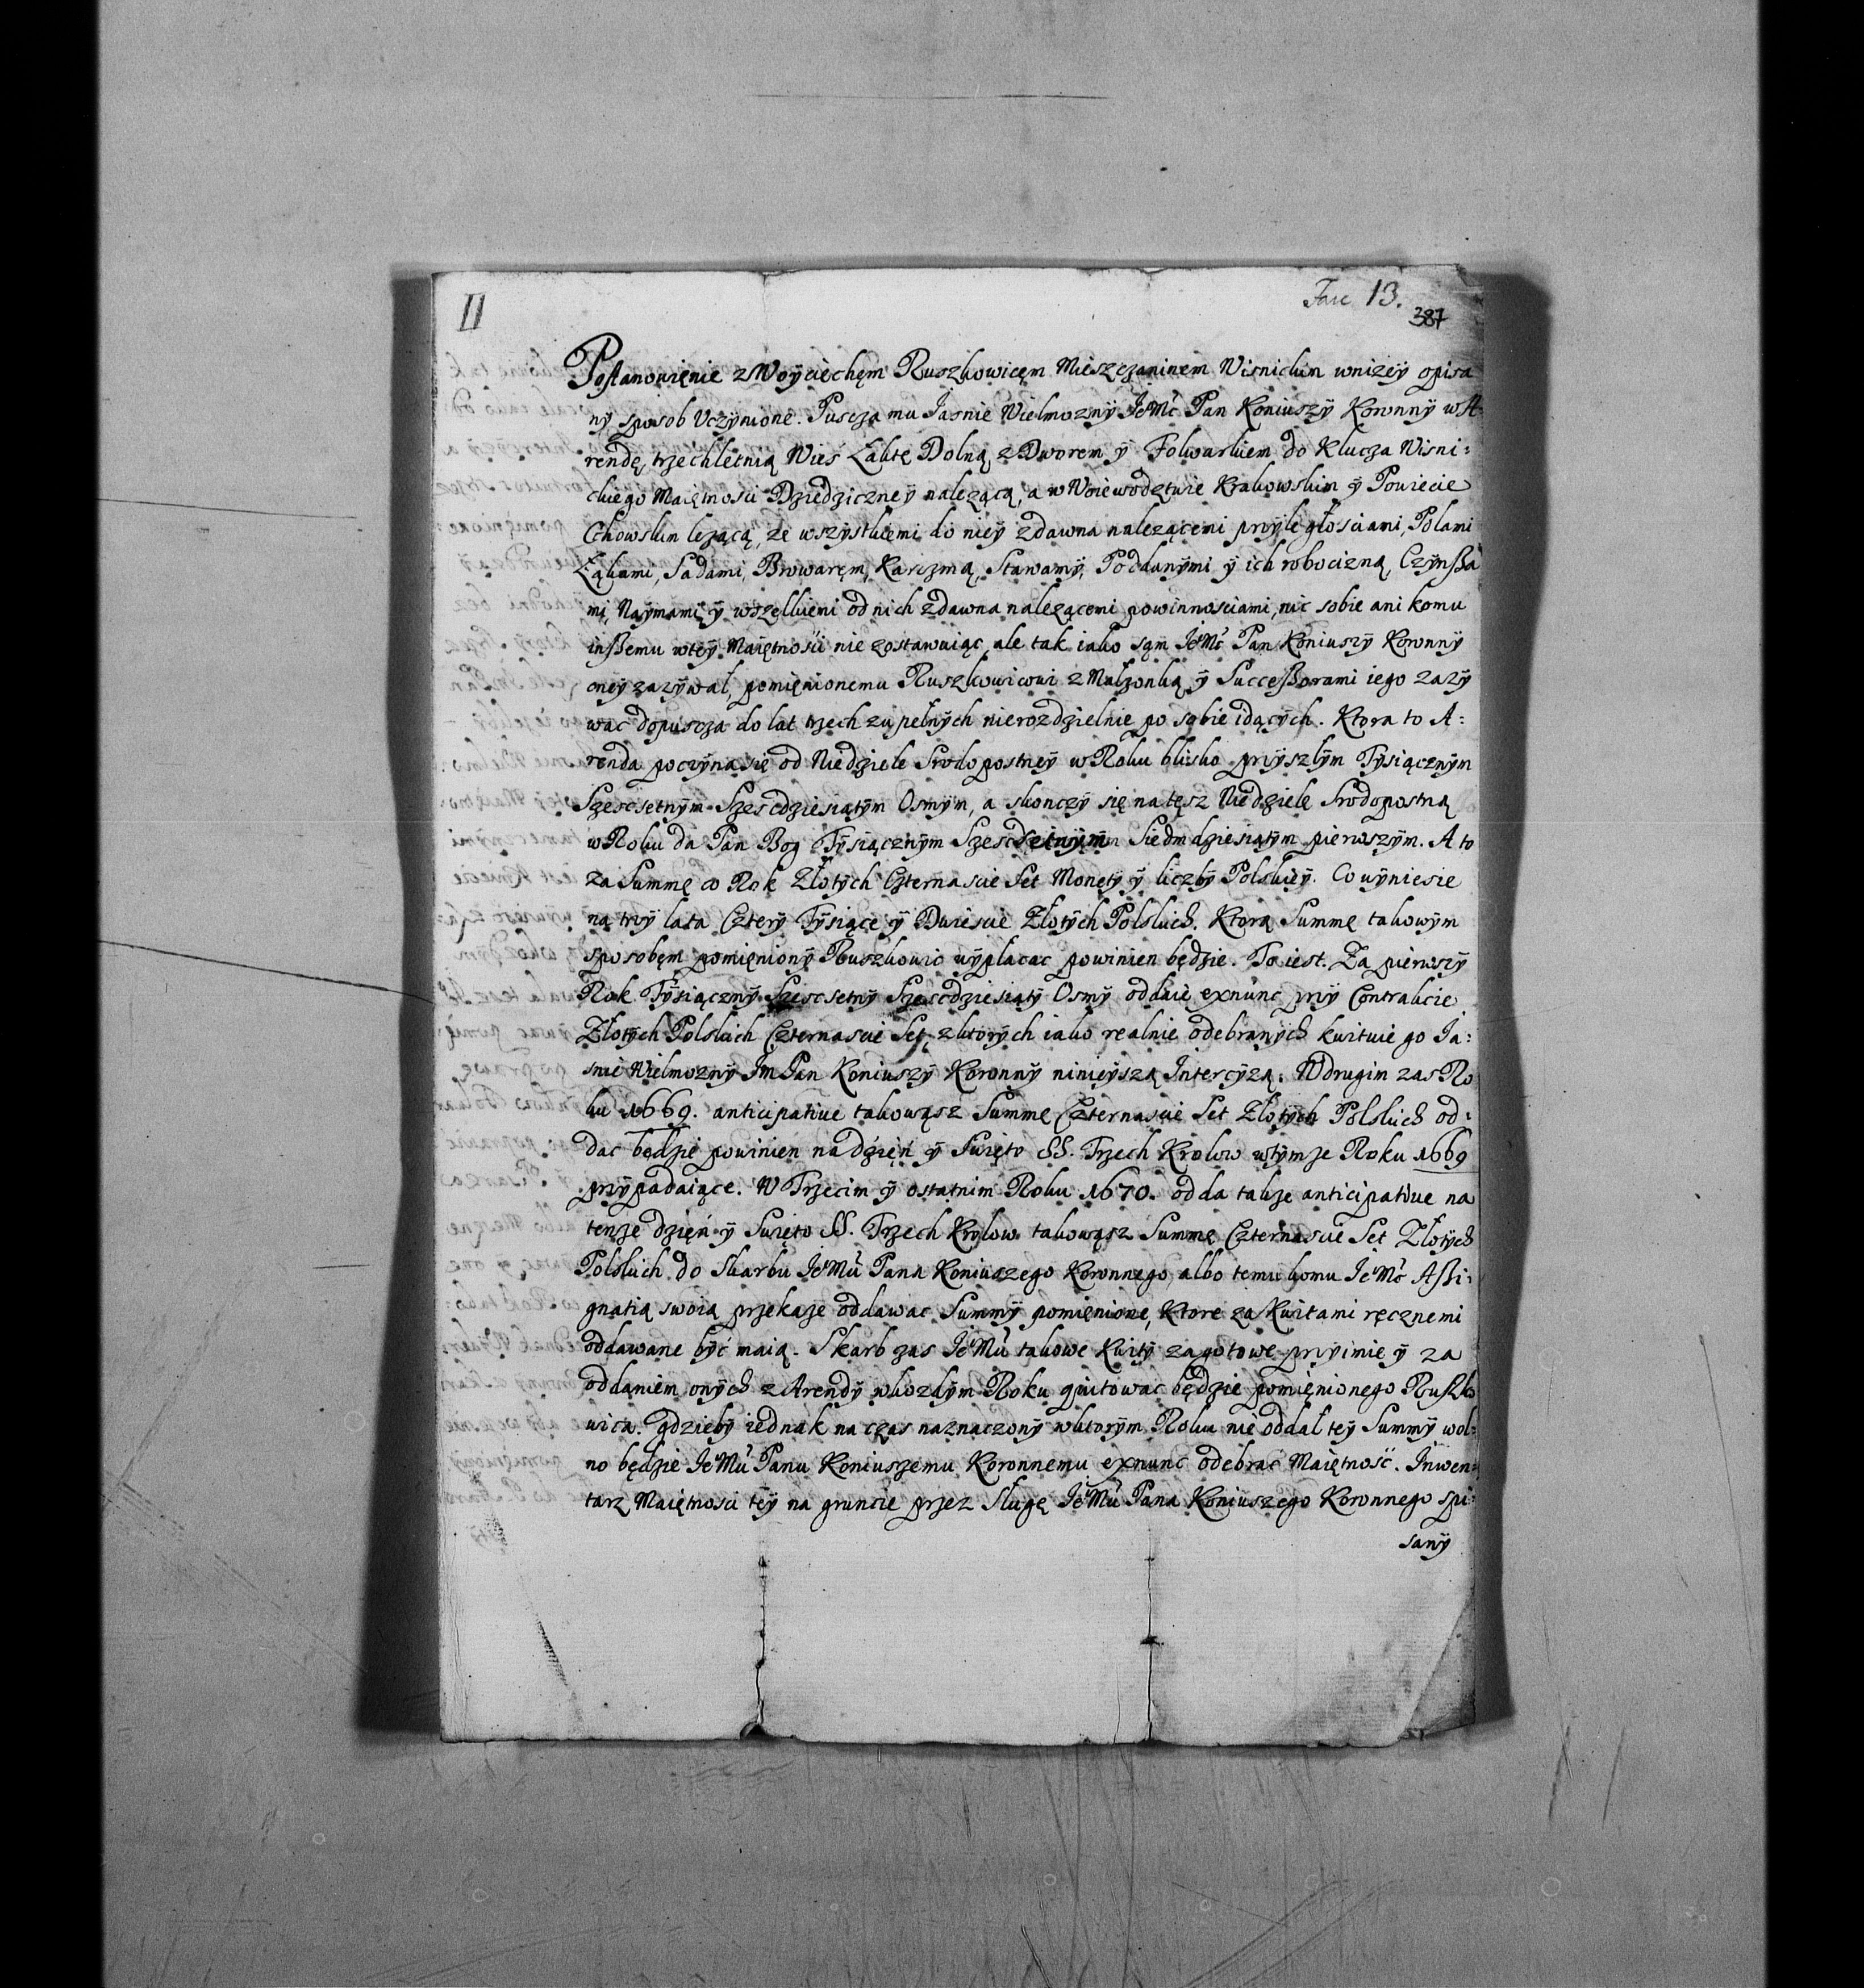 II
Fasc 13.
387
Postanowięnie z Woyciechęm Ruszkowicęm Mieszczaninem Wisnickim wniżey opisa
ny sposob Uczynione. Puscza mu Jasnie Wielmozny JeMć Pan Koniuszy Koronny w A=
rendę trzechletnią Wieś Łaktę Dolną z Dworem y Folwarkiem do Klucza Wisni=
ckiego Maiętnosci Dziedziczney nalezącą, a w Woiewodztwie Krakowskim y Powiecie
Cchowskim lezącą, ze wszystkiemi do niey zdawna nalezącemi przyległosciami, Polami
Łąkami, Sadami, Browaręm, Karczmą, Stawamy, Poddanymi y ich robocizną, Czynßa
mi, Naymami y wszelkiemi od nich zdawna nalezącemi powinnosciami, nic sobie ani komu
inßemu wtey Maiętnosci nie zostawuiąc, ale tak iako sąm JeMć Pan Koniuszy Koronny
oney zazywał, pomięnionemu Ruszkowicowi z Małzonką y Succeßorami iego zazy
wac dopuscza do lat trzech zupełnych nierozdzielnie po sobie idących. Ktora to A=
renda poczyna się od Niedziele Srodopostney w Roku blisko przyszłym Tysiącznym
Szescsetnym Szescdziesiątym Osmym, a skonczy się na tęsz Niedzielę Srodopostną
w Roku da Pan Bog Tysiącznym Szescsetnym Siedmdziesiątym pierwszym. A to
za Summę co Rok Złotych Czternascie Set Monety y liczby Polskiey. Co wyniesie
na trzy lata Cztery Tysiące y Dwiescie Złotych Polskich. Ktorą Summę takowym
sposobęm pomięniony Ruszkowic wypłacac powinien będzie. To iest. Za pierwszy
Rok Tysiączny Szescsetny Szescdziesiąty Osmy oddaie exnunc przy Contrakcie
Złotych Polskich Czternascie Set, z ktorych iako realnie odebranych kwituie go Ja=
snie Wielmozny Jm Pan Koniuszy Koronny ninieyszą Intercyzą. W drugim zas Ro
ku 1669. anticipative takowąsz Summę Czternascie Set Złotych Polskich od=
dac będzie powinien na dzięń y Swięto SS. Trzech Krolow wtymze Roku 1669
przypadaiące. W Trzecim y ostatnim Roku 1670. odda takze anticipative na
tenze dzięń y Swięto SS. Trzech Krolow takowąsz Summę Czternascie Set Złotych
Polskich do Skarbu JeMći Pana Koniuszego Koronnego albo temu komu JeMć Aßi=
gnatią swoią przekaze oddawac Summy pomięnione, Ktore za Kwitami ręcznemi
oddawane być maią. Skarb zas JeMći takowe Kwity za gotowe przyimie y za
oddaniem onych z Arendy wkozdym Roku qwitowac będzie pomięnionego Rußko
wica. Gdzieby iednak na czas naznaczony wktorym Roku nie oddał tey Summy wol=
no będzie JeMći Panu Koniuszemu Koronnemu exnunc odebrać Maiętność. Inwen=
tarz Maiętnosci tey na gruncie przez Sługę JeMći Pana Koniuszego Koronnego spi=
sany